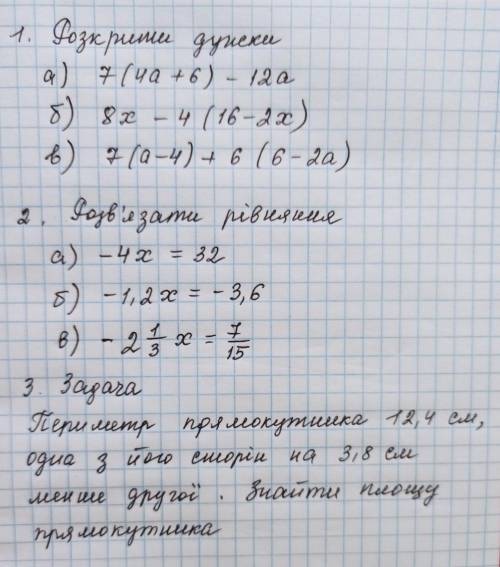 1. Розкрити дужки
а) 7(4а+6) - 12а
б) 8х - 4(16-2х)
в) 7(а-4) + 6(6-2а)
2. Розв'язати рівняння
а) -4х = 32
б) -1,2х = -3,6
в) -2 1/3 х = 7/15
3. Задача
Периметр прямокутника 12,4 см,
одна з його сторін на 3,8 см
менше другої. Знайти площу
прямокутника